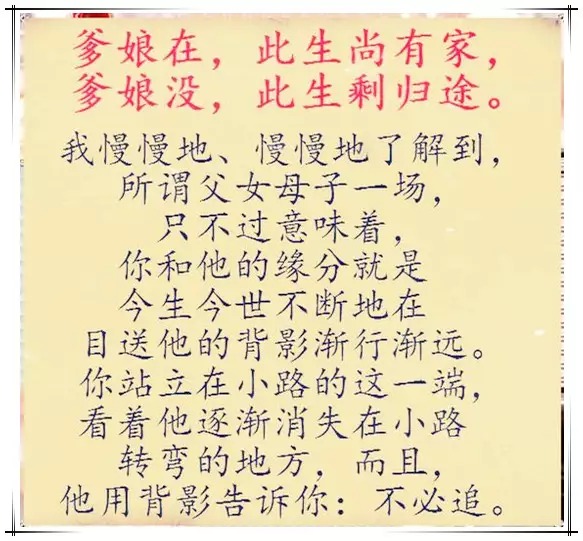 爹娘在，此生尚有家，
爹娘没，此生剩归途。
我慢慢地、慢慢地了解到，
所谓父女母子一场，
只不过意味着，
你和他的缘分就是
今生今世不断地在
目送他的背影渐行渐远。
你站立在小路的这一端，
看着他逐渐消失在小路
转弯的地方，而且，
他用背影告诉你：不必追。